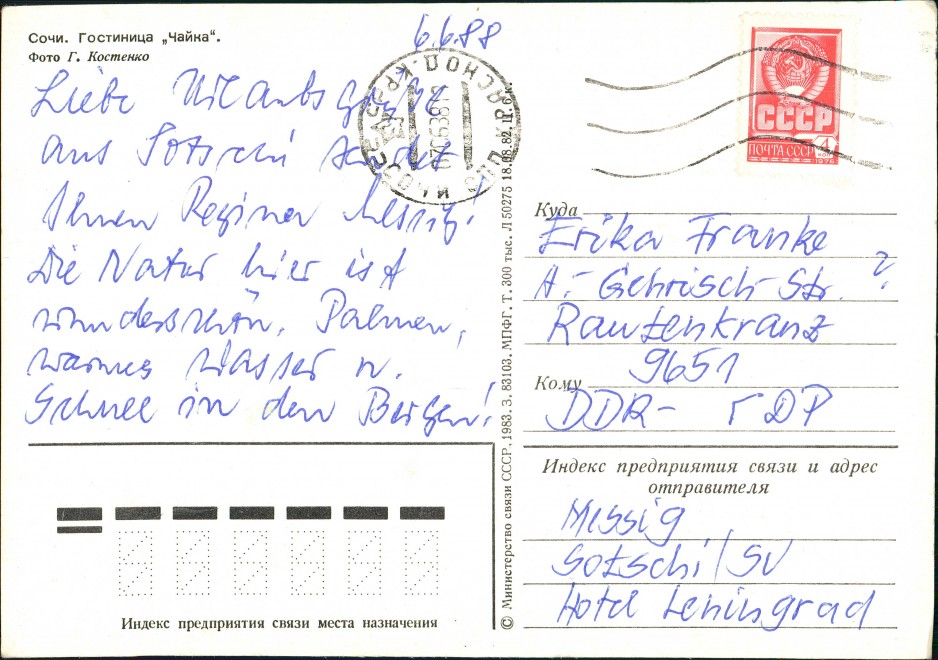 Сочи. Гостиница „Чайка“.
Фото Г. Костенко
6.6.88
Liebe Urlaubsgrüße
aus Sotschi sendet
Ihnen Regina Messig.
Die Natur hier ist
wunderschön, Palmen,
warmes Wasser u.
Schnee in den Bergen!
СССР
ПОЧТА СССР
4
КОП
1976
Куда
Erika Franke
A.-Gehrisch-Str. ?
Rautenkranz
9651
Кому
DDR - ГДР
Индекс предприятия связи и адрес
отправителя
Messig
Sotschi / SU
Hotel Leningrad
Индекс предприятия связи места назначения
© Министерство связи СССР. 1983. З. 83103. МПФГ. Т. 300 тыс. Л 50275 18.08.82. Ц. 6 к.